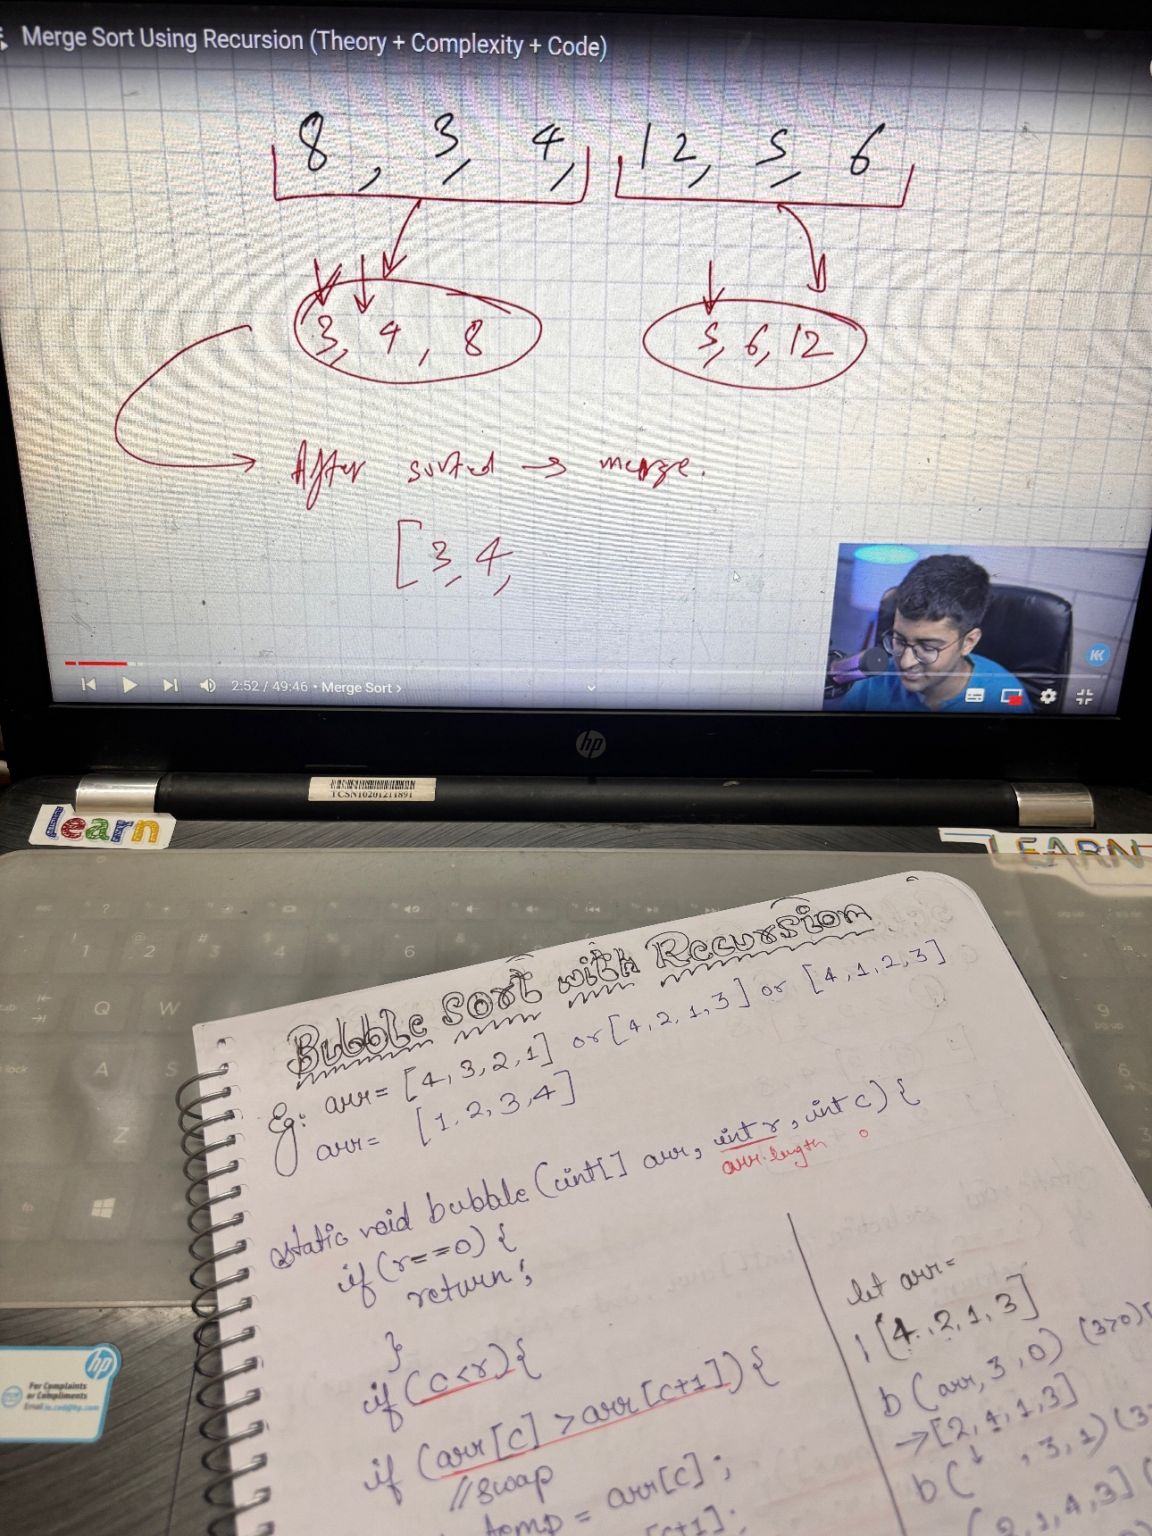 Merge Sort Using Recursion (Theory + Complexity + Code)
8, 3, 4, 12, 5, 6
3, 4, 8
5, 6, 12
After sorted → merge.
[3, 4,
2:52 / 49:46 • Merge Sort >
hp
TCSN10201211891
learn
LEARN
Bubble Sort with Recursion
Eg: arr = [4, 3, 2, 1] or [4, 2, 1, 3] or [4, 1, 2, 3]
arr = [1, 2, 3, 4]
static void bubble (int[] arr, int r, int c) {
arr.length 0
if (r==0) {
return;
}
if (c<r) {
if (arr[c] > arr[c+1]) {
//swap
temp = arr[c];
[c+1];
let arr =
[4, 2, 1, 3]
b (arr, 3, 0) (3>0)
→ [2, 4, 1, 3]
b ( ↓ , 3, 1)
1, 4, 3]
hp
For Complaints
or Compliments